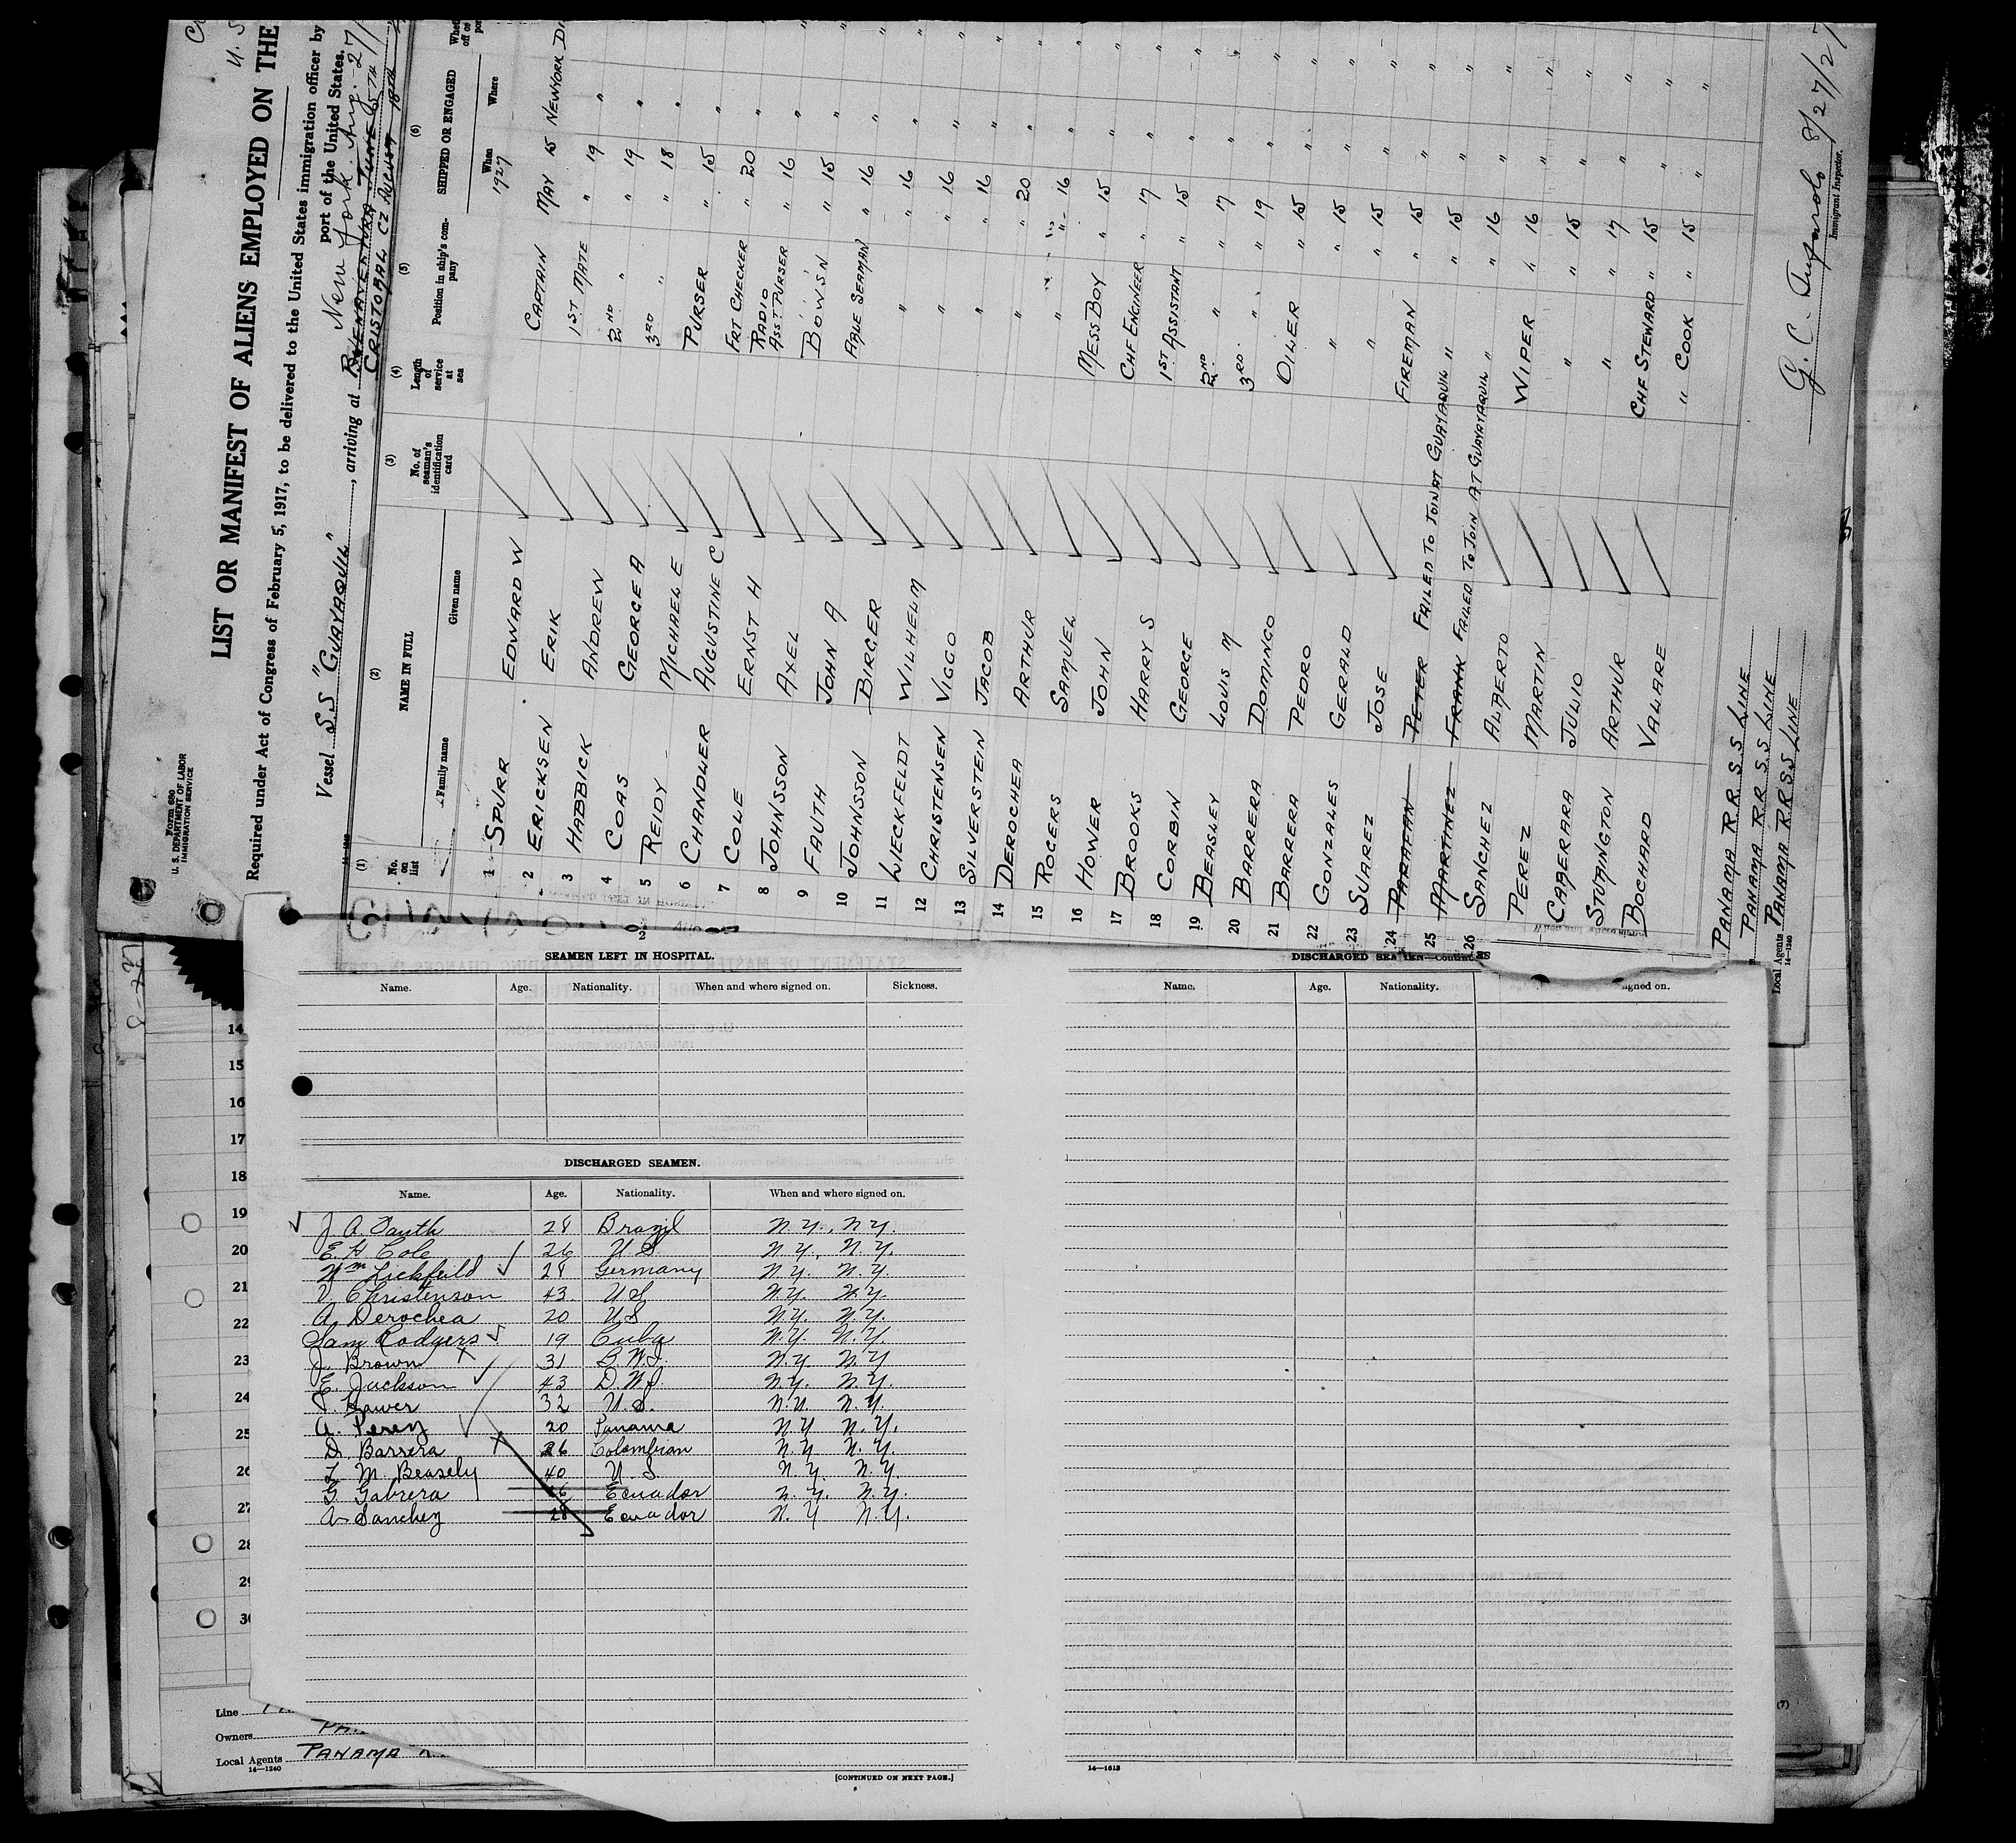 Form 680
U. S. DEPARTMENT OF LABOR
IMMIGRATION SERVICE
LIST OR MANIFEST OF ALIENS EMPLOYED ON THE
Required under Act of Congress of February 5, 1917, to be delivered to the United States immigration officer by
port of the United States.
Vessel S.S "GUAYAQUIL", arriving at New York Aug. 27/
CRISTOBAL CZ AUGUST 18TH
(1) (2) (3) (4) (5) (6)
No. on list NAME IN FULL No. of seaman's identification card Length of service at sea Position in ship's company SHIPPED OR ENGAGED
Family name Given name When Where
1927
1 SPURR EDWARD W CAPTAIN MAY 15 NEWYORK
2 ERICKSEN ERIK 1ST MATE " 19 "
3 HABBICK ANDREW 2ND " " 19 "
4 COAS GEORGE A 3RD " " 18 "
5 REIDY MICHAEL E PURSER " 15 "
6 CHANDLER AUGUSTINE C FRT CHECKER " 20 "
7 COLE ERNST H RADIO ASST PURSER " 16 "
8 JOHNSSON AXEL BOW'S'N " 15 "
9 FAUTH JOHN A ABLE SEAMAN " 16 "
10 JOHNSSON BIRGER " " 16 "
11 LIECKFELDT WILHELM " " 16 "
12 CHRISTENSEN VIGGO " " 16 "
13 SILVERSTEIN JACOB " " 20 "
14 DEROCHEA ARTHUR " " 16 "
15 ROGERS SAMUEL MESS BOY " 15 "
16 HOWER JOHN CHF ENGINEER " 17 "
17 BROOKS HARRY S 1ST ASSISTANT " 15 "
18 CORBIN GEORGE 2ND " " 17 "
19 BEASLEY LOUIS M 3RD " " 19 "
20 BARRERA DOMINGO OILER " 15 "
21 BARRERA PEDRO " " 15 "
22 GONZALES GERALD " " 15 "
23 SUAREZ JOSE FIREMAN " 15 "
24 PETER FAILED TO JOIN AT GUAYAQUIL " " 15 "
25 MARTINEZ FRANK FAILED TO JOIN AT GUAYAQUIL " " 16 "
26 SANCHEZ ALBERTO WIPER " 16 "
PEREZ MARTIN " " 15 "
CABERARA JULIO " " 17 "
STUMINGTON ARTHUR CHF STEWARD " 15 "
BOCHARD VALARE " COOK " 15 "
PANAMA R.R. S.S LINE
PANAMA R.R S.S LINE
Local Agents PANAMA R.R SS LINE
14—1240
8/27/27
Immigrant Inspector.
2
SEAMEN LEFT IN HOSPITAL.
Name. Age. Nationality. When and where signed on. Sickness.
DISCHARGED SEAMEN.
Name. Age. Nationality. When and where signed on.
J A Fauth 28 Brazil N.Y., N.Y.
E. H Cole 26 U S. N.Y., N.Y.
Wm Lickfeild 28 Germany N.Y. N.Y.
V. Christenson 43 U S N.Y. N.Y.
A. Derochea 20 U S N.Y. N.Y.
Sam Rodgers 19 Cuba N.Y. N.Y.
J. Brown 31 B.W.I. N.Y. N.Y
E. Jackson 43 D.W.I. N.Y. N.Y.
J. Hower 32 U.S. N.Y N.Y.
A. Perez 20 Panama N Y N.Y.
D. Barrera 26 Colombian N.Y N.Y.
L M. Beasely 40 U. S N.Y. N.Y.
G. Gabrera 26 Ecuador N.Y. N.Y.
A. Sanchez 28 Ecuador N.Y N.Y.
[CONTINUED ON NEXT PAGE.]
Name. Age. Nationality. signed on.
14—1613
14
15
16
17
18
19
20
21
22
23
24
25
26
27
28
29
30
Line
Owners
Local Agents PANAMA
14—1240
(7)